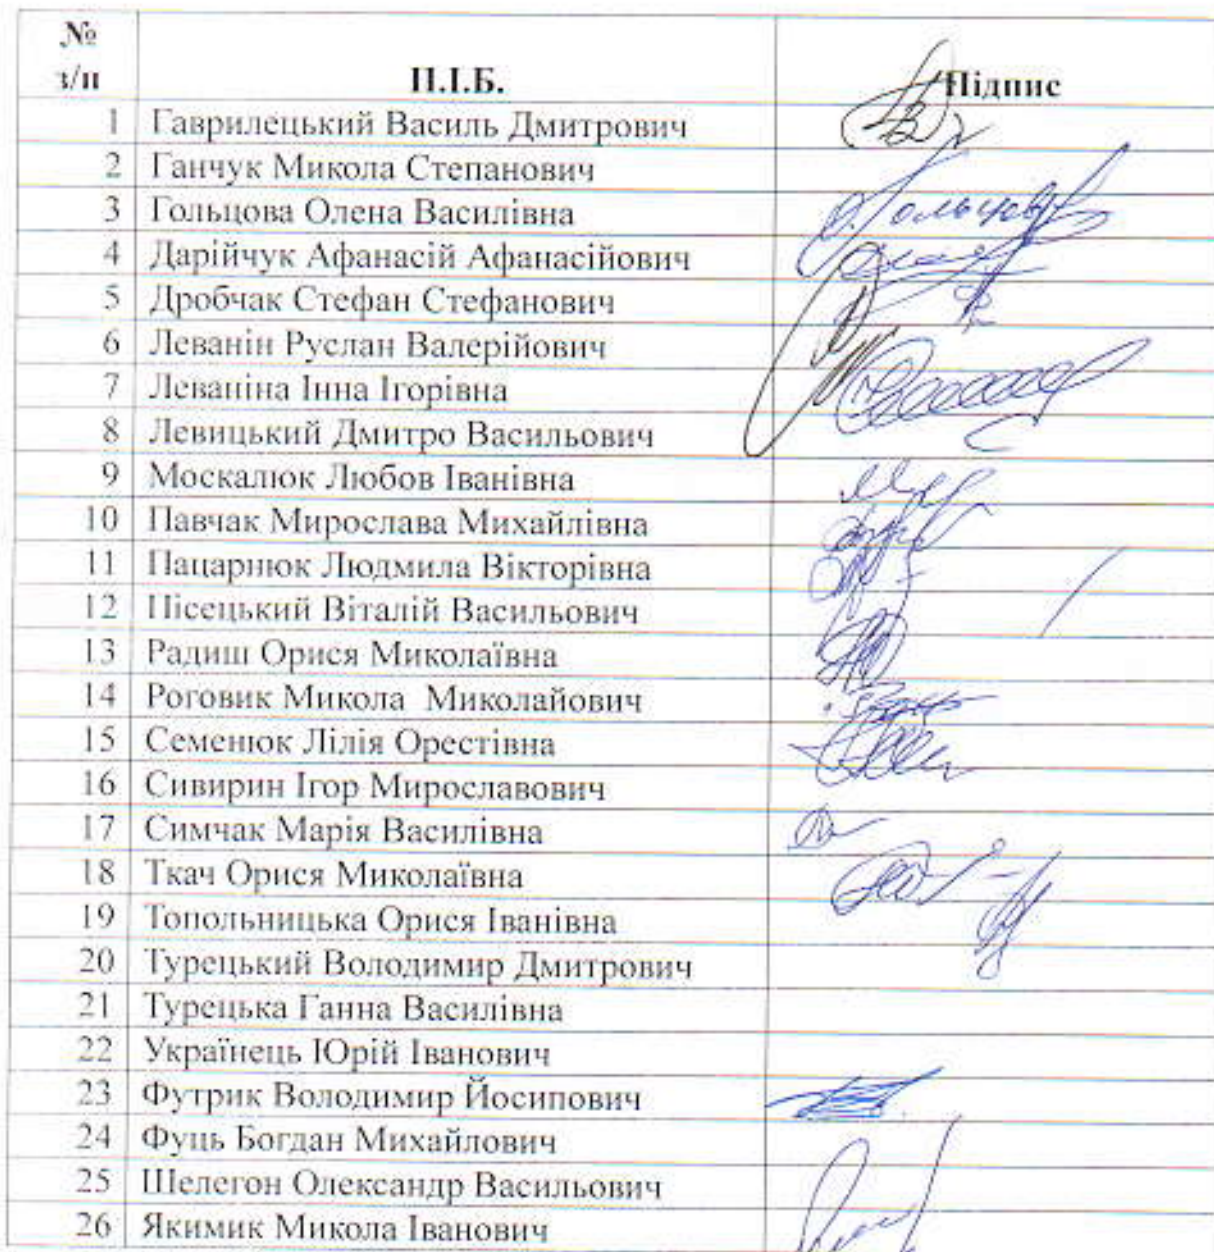 №
з/п П.І.Б. Підпис
1 Гаврилецький Василь Дмитрович
2 Ганчук Микола Степанович
3 Гольцова Олена Василівна О. Гольцова
4 Дарійчук Афанасій Афанасійович
5 Дробчак Стефан Стефанович
6 Леванін Руслан Валерійович
7 Леваніна Інна Ігорівна
8 Левицький Дмитро Васильович
9 Москалюк Любов Іванівна
10 Павчак Мирослава Михайлівна
11 Пацарнюк Людмила Вікторівна
12 Пісецький Віталій Васильович
13 Радиш Орися Миколаївна
14 Роговик Микола Миколайович
15 Семенюк Лілія Орестівна
16 Сивирин Ігор Мирославович
17 Симчак Марія Василівна
18 Ткач Орися Миколаївна
19 Топольницька Орися Іванівна
20 Турецький Володимир Дмитрович
21 Турецька Ганна Василівна
22 Українець Юрій Іванович
23 Футрик Володимир Йосипович
24 Фуць Богдан Михайлович
25 Шелегон Олександр Васильович
26 Якимик Микола Іванович